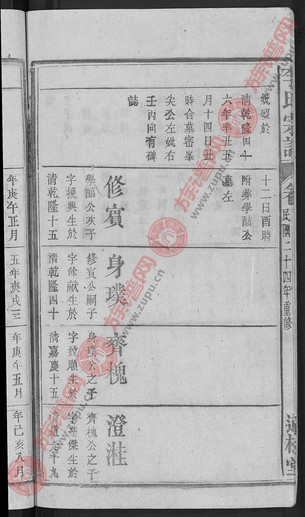 李氏宗譜
卷
民國二十四年重修
清乾隆四十
六年辛丑五
月十四日丑
時合墓密峯
尖公左妣右
壬丙向有碑
誌
十二日酉時
附葬學
墓左
修賓
學
字挽興生於
清乾隆十五
年庚午正月
身璞
修賓公嗣子
字餘獻生於
清乾隆四十
五年庚戌三
齊槐
身璞公之子
字致順生於
清嘉慶十五
年庚午五月
澄溎
齊槐公之子
傑生於
年己亥八月
方宇譜網
www.zupu.cn